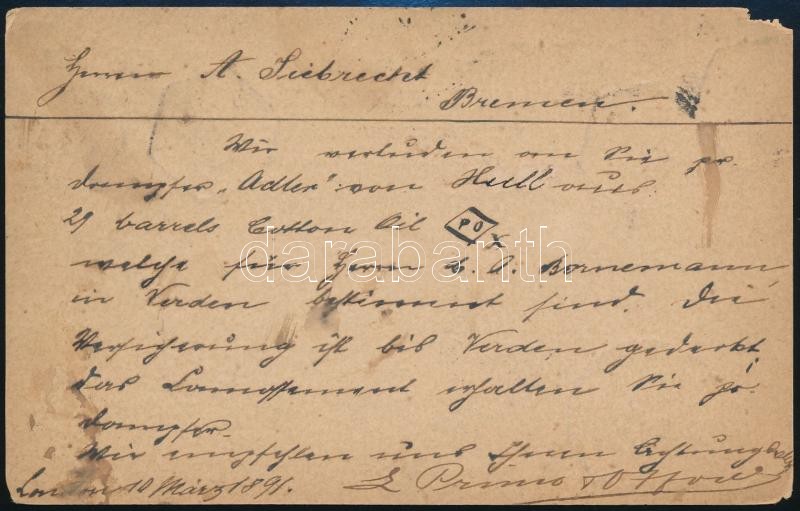 Herrn A. Siebrecht
Bremen.
Wir verluden an Sie pr.
dampfer „Adler" von Hull aus
29 barrels Cotton Oil PO
welche für Herrn A. Bornemann,
in Verden bestimmt sind. Die
Versicherung ist bis Verden gedeckt,
das Connossement erhalten Sie pr.
dampfer.
Wir empfehlen uns Ihnen Achtungsvoll
London 10 März 1891.
darabanth